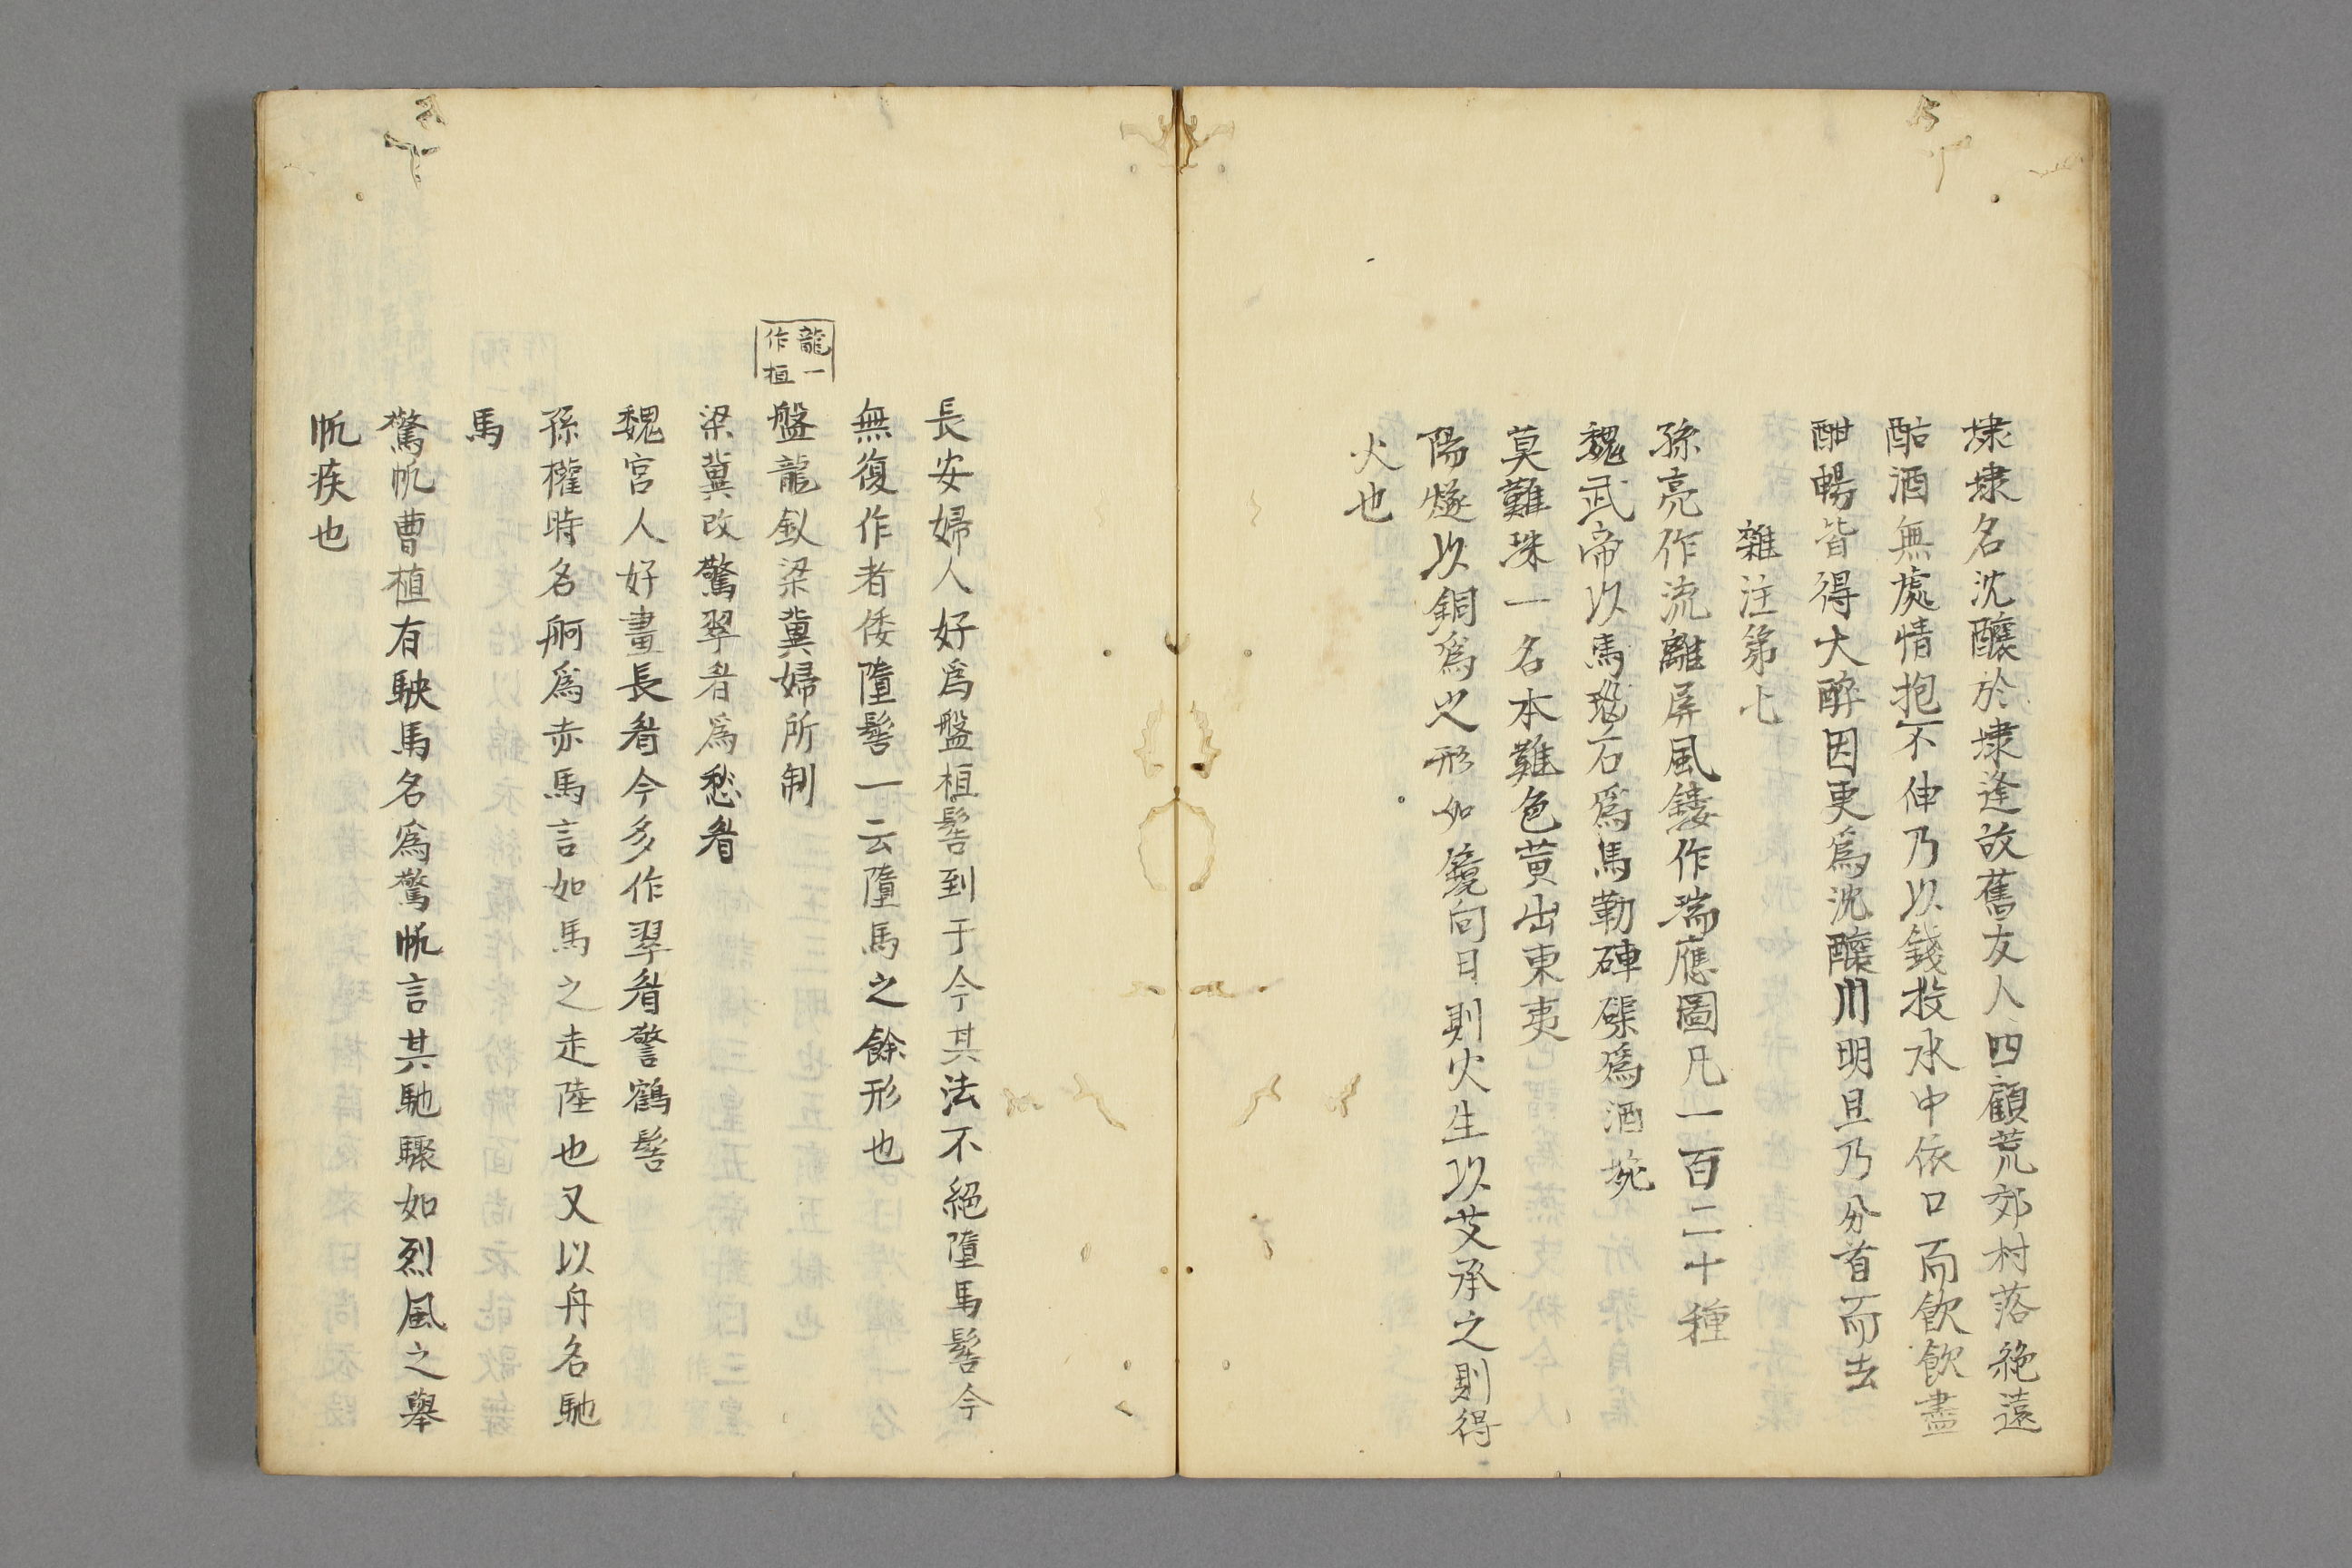 埭埭名沈釀於埭逢故舊友人四顧荒郊村落絶遠
酤酒無處情抱不伸乃以錢投水中依口而飲飲盡
酣暢皆得大醉因更爲沈釀川明旦乃分首而去
雜注第七
孫亮作流離屏風鏤作瑞應圖凡一百二十種
魏武帝以馬瑙石爲馬勒硨磲爲酒椀
莫難珠一名木難色黄出東夷
陽燧以銅爲之形如鏡向日則火生以艾承之則得
火也
長安婦人好爲盤桓髻到于今其法不絶墮馬髻今
無復作者倭墮髻一云墮馬之餘形也
龍一
作桓
盤龍釵梁冀婦所制
梁冀改驚翠眉爲愁眉
魏宫人好畫長眉今多作翠眉警鶴髻
孫權時名舸爲赤馬言如馬之走陸也又以舟名馳
馬
驚帆曹植有駃馬名爲驚帆言其馳驟如烈風之舉
帆疾也